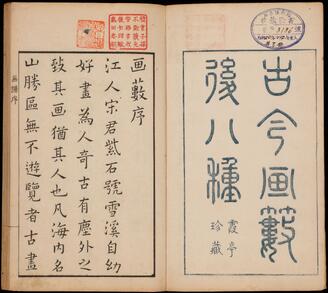 古今画藪
後八種
霞亭
珍藏
画藪序
江人宋君紫石號雪溪自幼
好畫為人奇古有塵外之
致其画猶其人也凡海内名
山勝區無不遊覽者古畫